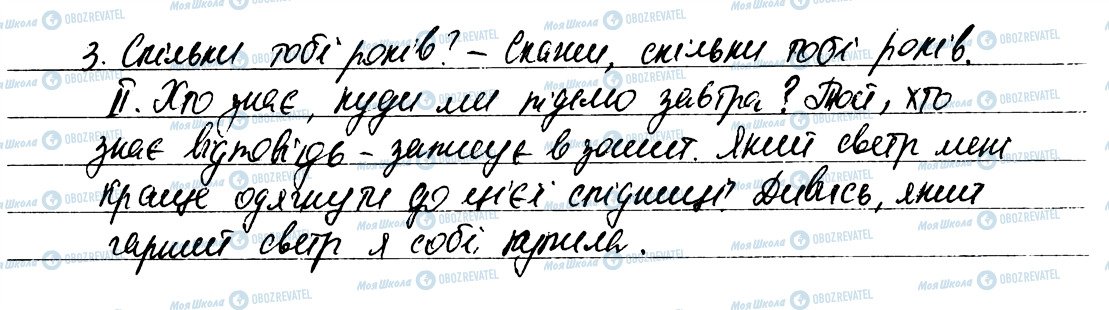 3. Скільки тобі років? – Скажи, скільки тобі років.
II. Хто знає, куди ми підемо завтра? Той, хто
знає відповідь – записує в зошит. Який светр мені
краще одягнути до цієї спідниці? Дивись, який
гарний светр я собі купила.